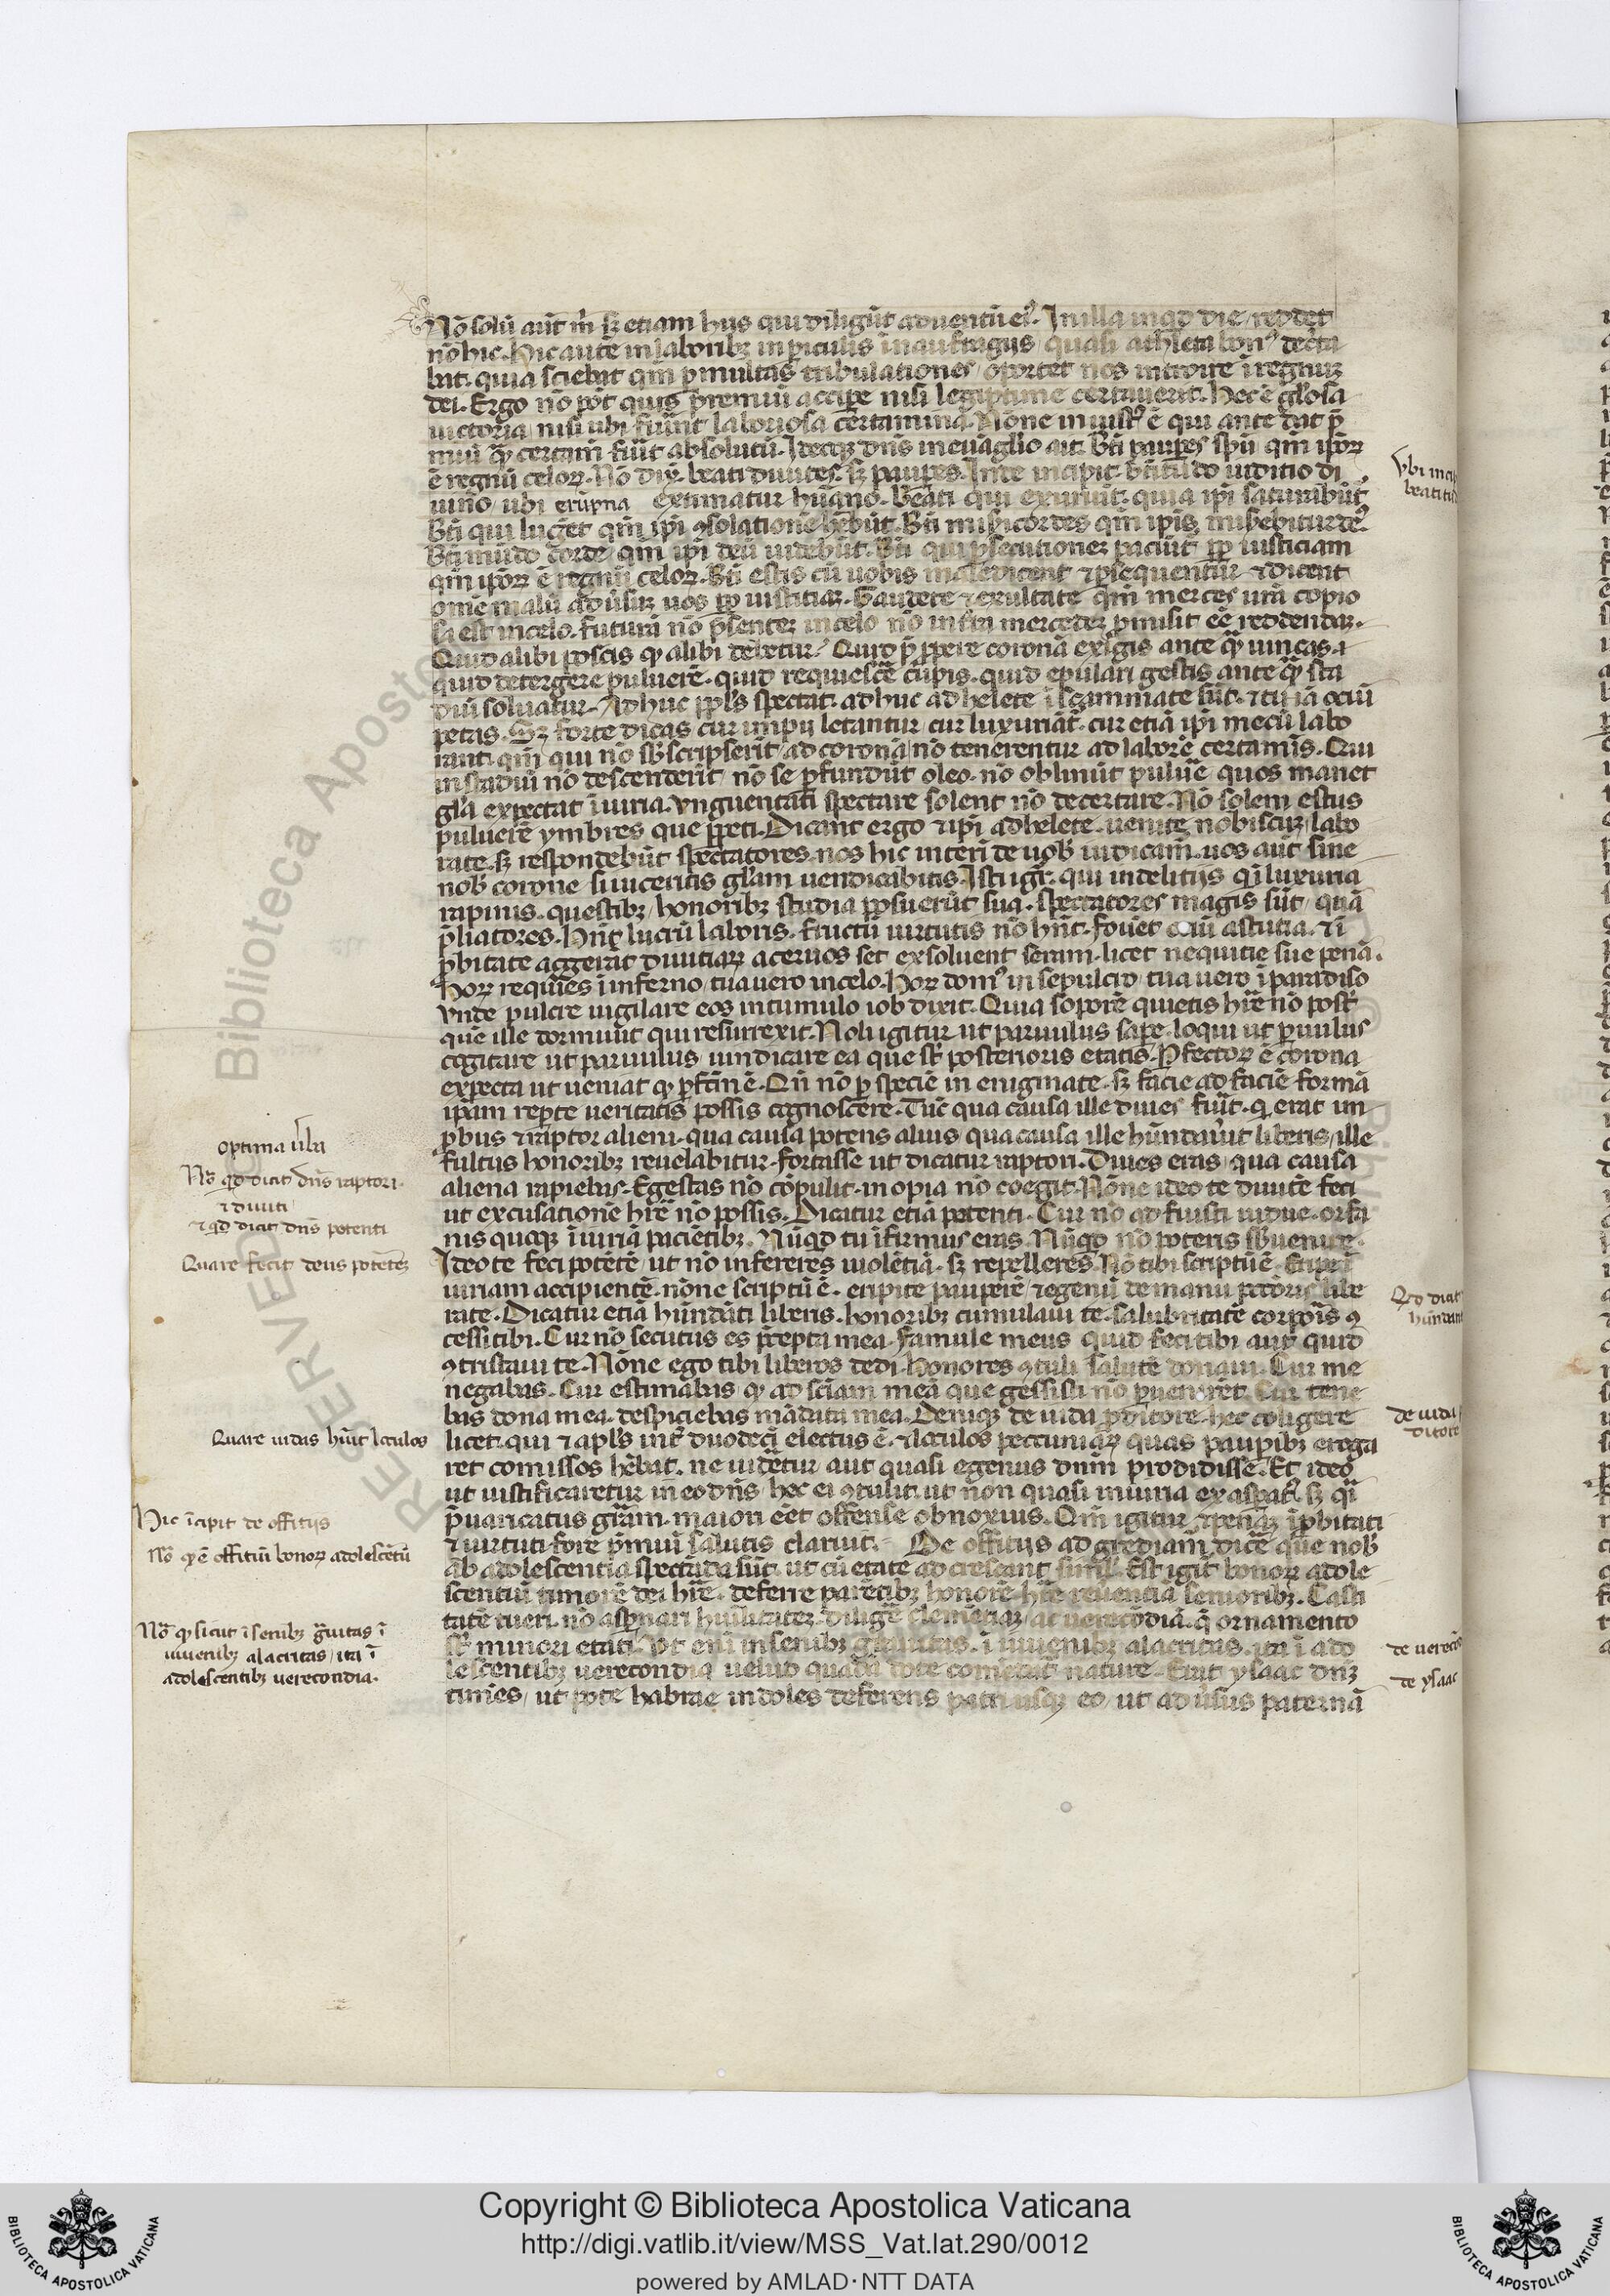 Nō solū aūt m̄ sꝫ etiam hiis qui diligūt aduentū eiꝰ. In illa inqd die reddet
nō hic. Hic autē in laboribꝫ in piculis in naufragijs quasi athleta bonꝰ decta
bat. quia sciebat qm̄ p multas tribulationes oportet nos introire ī regnuꝫ
dei. Ergo nō pōt quis premiū accipe nisi legiptime certauerit. Nec ē gl̄osa
uictoria nisi ubi fuerint laboriosa certamina. Nōne iniustꝰ ē qui ante dat p̄
miū qꝫ certam̄ fūit absolutū. Ideoqꝫ dn̄s in euāglio ait. Bt̄i paupes spū qm̄ ipoꝝ
ē regnū celoꝝ. Nō dix̄ beati diuites. sꝫ paupes. Inde incipit btītudo iuditio di
uino ubi erūpna extimatur hūano. Beati qui exuriūt. quia ipi saturabūt̄
Bt̄i qui luget qm̄ ipi ꝯsolationē hēbūt. Bt̄i misicordes qm̄ ipis misebitur deꝰ
Bt̄i mūdo corde qm̄ ipi deū uidebūt. Bt̄i qui psecutioneꝫ paciūt̄ ꝓp iusticiam
qm̄ ipoꝝ ē regnū celoꝝ. Bt̄i estis cū uobis maledicent ⁊ psequentur ⁊ dicent
om̄e malū adūsuꝫ uos ꝓp iustitiaꝫ. Gaudete ⁊ exultate qm̄ merces ura copio
sa est in celo. futurā nō p̄senteꝫ in celo nō in trā mercedeꝫ pmisit eē reddendaꝫ.
Quid alibi poscis qd alibi debetur. Quid p̄ppere coronā exigis ante qꝫ uincas.
quid detergere puluerē. quid requiescē cupis. quid epulari gestis ante qꝫ sta
diū soluatur. Adhuc ppl̄s spectat. adhuc adhelete ī scammate sūt. ⁊ tu iā ociū
petis. Sꝫ forte dicas cur impij letantur cur luxuriāt. cur etiā ipi mecū labo
rant. qm̄ qui nō sb̄scripserīt ad coronā nō tenerentur ad laborē certamīs. Qui
in stadiū nō descenderīt nō se pfundūt oleo. nō obliniūt puluē quos manet
gl̄a expectat īiuria. vnguentati spectare solent nō decertare. Nō solem estus
puluerē ymbres que ppeti. Dicant ergo ⁊ ipi adhelete. uenite nobiscuꝫ labo
rate. sꝫ respondebūt spectatores nos hic interī de uob̄ iudicam̄. uos aūt sine
nob̄ corone si uiceritis gl̄am uendicabitis. Isti igr̄. qui in delitijs qī luxuria
rapinis. questibꝫ honoribꝫ studia pposuerūt sua. spectatores magis sūt quā
p̄liatores. Hn̄t lucrū laboris. fructū uirtutis nō hn̄t. fouēt ociū astutia. ⁊ ī
pbitate aggerāt diuitiaꝝ aceruos set exsoluent seram. licet nequitie sue penā.
Hoꝝ requies ī inferno tua uero in celo. Hoꝝ domꝰ in sepulcro tua uero ī paradiso
vnde pulcre uigilare eos in tumulo iob dixit. Quia soporē quietis hr̄e nō poss̄t
quē ille dormiuit qui resurrexit. Noli igitur ut paruulus sape. loqui ut puulus
cogitare ut paruulus uindicare ea que st̄ posterioris etatis. Pfectoꝝ ē corona
expecta ut ueniat qd pfm̄ ē. Qn̄ nō p speciē in enigmate. sꝫ facie ad faciē formā
ipam repte ueritatis possis cognoscere. Tūc qua causa ille diues fūit. q̄ erat im
pbus ⁊ raptor alieni. qua causa potens alius qua causa ille hūndauīt liberis ille
fultus honoribꝫ reuelabitur. fortasse ut dicatur raptori. Diues eras qua causa
aliena rapiebas. Egestas nō cōpulit. inopia nō coegit. Nōne ideo te diuitē feci
ut excusationē hr̄e nō possis. Dicatur etiā potenti. Cur nō adfuisti uidue. orfa
nis quoqꝫ īiuriā paciētibꝫ. Nūqd tu īfirmus eras. Nūqd nō poteris sb̄uenire.
Ideo te feci potētē ut nō infereres uiolētiā. sꝫ repelleres. Nō tibi scriptū ē. Eripe ī
iuriam accipientē. nōne scriptū ē. eripite pauperē ⁊ egenū de manu pctōris libe
rate. Dicatur etiā hūndāti liberis. honoribꝫ cumulaui te. salubritatē corpois ꝯ
cessi tibi. Cur nō secutus es p̄cepta mea. famule meus quid feci tibi aut quid
ꝯtristaui te. Nōne ego tibi liberos dedi. honores ꝯtuli salutē donaui. Cur me
negabas. Cur estimabas qd ad sciam meā que gessisti nō pueniret. Cur tene
bas dona mea. despiciebas mādata mea. Deniqꝫ de iuda pditore. hec coligere
licet. qui ⁊ apl̄s intꝰ duodecī electus ē. ⁊ loculos peccuniaꝝ quas paupibꝫ eroga
ret comissos hēbat. ne uidetur aut quasi egenus dn̄m prodidisse. Et ideo
ut iustificaretur in eo dn̄s hec ei ꝯtulit. ut non quasi iniuria exaspatꝰ sꝫ qī
p̄uaricatus grām. maiori eēt offense obnoxius. Qm̄ igitur ⁊ penaꝫ īpbitati
⁊ uirtuti fore p̄miū salutis claruit. De offitijs adgrediam̄ dicē que nob̄
ab adolescentia spectāda sūt. ut cū etate adcrescant simul̄. Est igit̄ bonoꝝ adole
scentiū timorē dei hr̄e. deferre parētibꝫ honorē hr̄e reuentiā senioribꝫ. Casti
tatē tueri. nō aspnari hūilitateꝫ diligē clemētiaꝫ ac uerecōdiā. q̄ ornamento
st̄ minori etati. Vt enī in senibꝫ grauitas. ī iuuenibꝫ alacritas. ita ī ado
lescentibꝫ uerecondia uelud quadā dote comēdat nature. Erat ysaac dn̄ꝫ
timēs ut pote habrae indoles deferens patri usqꝫ eo ut adūsus paternā
Vbi incip
beatitud
optima ūba
Nō qd dicit dn̄s raptori.
⁊ diuiti
⁊ qd dicit dn̄s potenti
Quare fecit deus potētēꝫ
Qd dicat
hūndant
de iuda p
ditore
Quare iudas hūit loculos
Hic īcipit de offitijs
Nō qd ē offitiū bonoꝝ adolescētū
Nō qd sicut ī senibꝫ grauitas ī
iuuenibꝫ alacritas ita ī
adolescentibꝫ uerecondia.
de verecō
de ysaac
© Biblioteca Apostolica
RESERVED
Copyright © Biblioteca Apostolica Vaticana
http://digi.vatlib.it/view/MSS_Vat.lat.290/0012
powered by AMLAD·NTT DATA
BIBLIOTECA APOSTOLICA VATICANA
BIBLIOTECA APOSTOLICA VATICANA